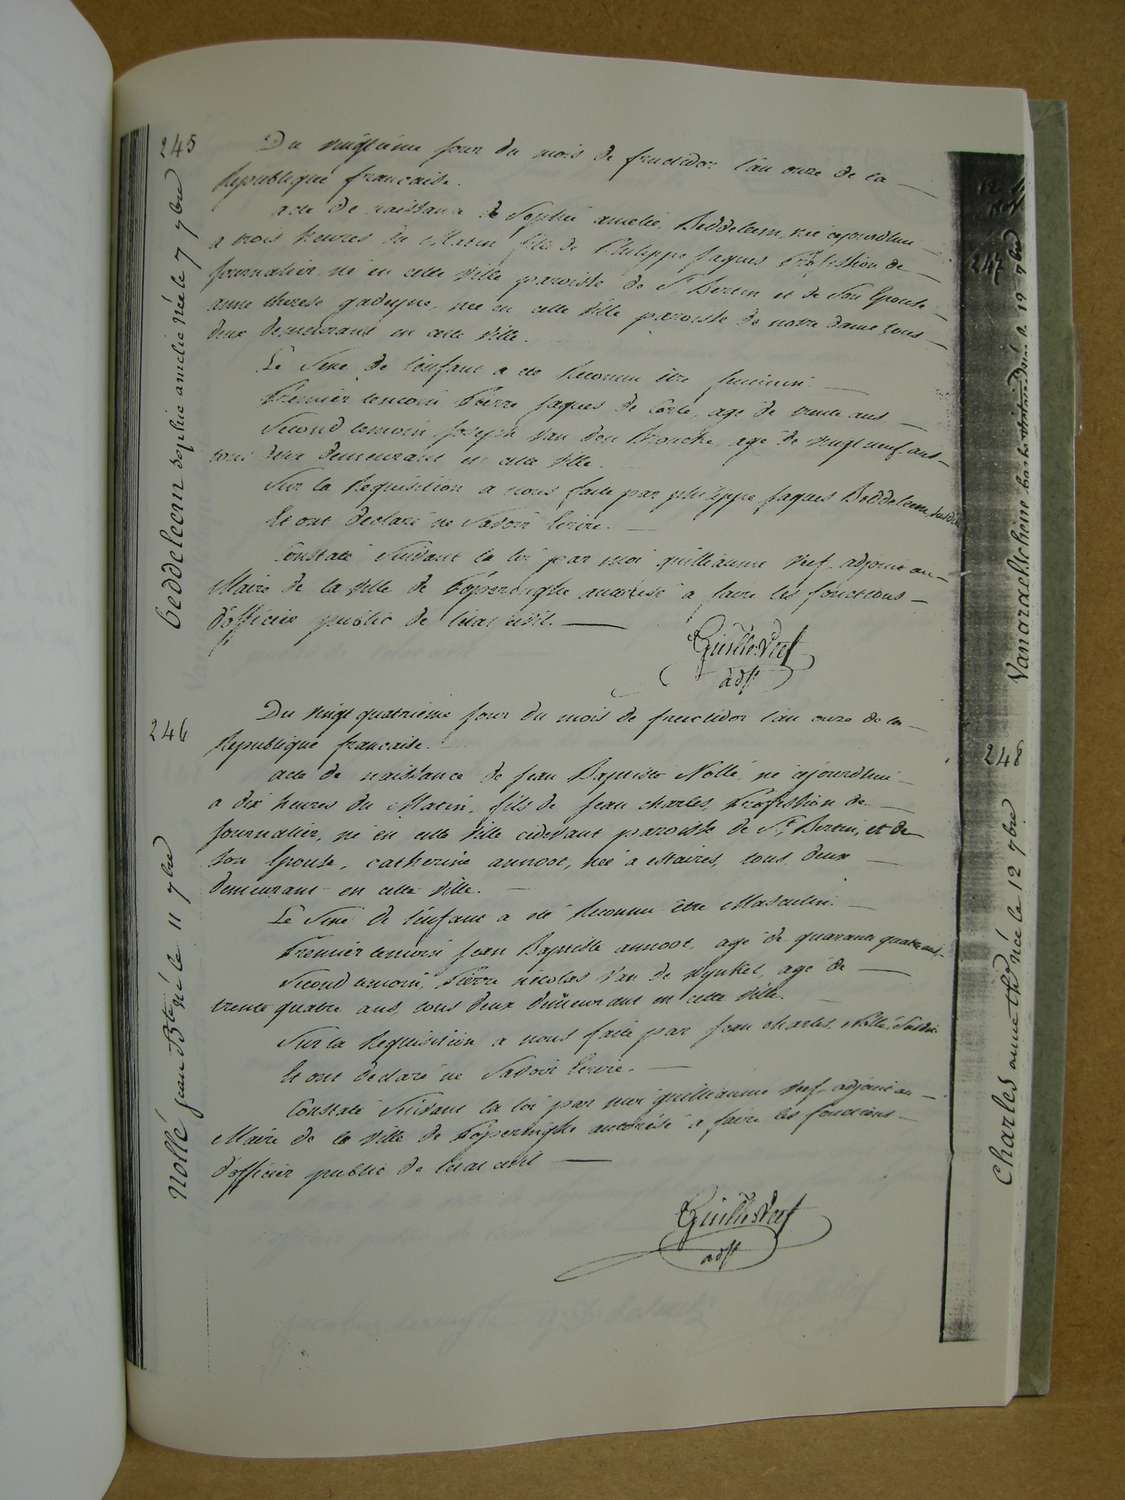 245
beddeleem sophie amelie née le 7 7bre
Du vingtième jour du mois de fructidor l'an onze de la
Republique francaise.
acte de naissance de Sophie amelie Beddeleem, née ajourdhui
a trois heures du Matin fille de Philippe Jaques Profession de
Journalier né en cette Ville paroisse de St Bertin et de Son Epouse
anne therese née en cette Ville paroisse de notre dame tous
deux demeurant en cette Ville.
Le Sexe de l'enfant a ete Reconnu être feminin.
Premier temoin Pierre Jaques de Corte, age de trente ans
Second temoin Joseph Van den Brouche, age de vingt neuf ans
tous deux demeurant en cette Ville.
Sur la Requisition a nous faite par philippe Jaques Beddeleem susdit
Et ont declaré ne Savoir Ecrire.
Constaté Suivant la loi par moi guilliaume Verf adjoint au
Maire de la Ville de Poperinghe autorisé a faire les fonctions
d'officier public de l'etat civil.
adjt
246
Nollé jean Bte né le 11 7bre
Du vingt quatrieme jour du mois de fructidor l'an onze de la
Republique francaise.
acte de naissance de Jean Baptiste Nollé, né ajourdhui
a dix heures du Matin, fils de Jean charles, Profession de
Journalier, né en cette Ville cidevant paroisse de St Bertin, et de
Son Epouse, catherine annoot, née a estaires, tous deux
demeurant en cette Ville.
Le Sexe de l'enfant a été Reconnu être Masculin.
Premier temoin Jean Baptiste annoot, agé de quarante quatre ans
Second temoin Pierre nicolas Van de Wynkel, age de
trente quatre ans, tous deux demeurant en cette Ville.
Sur la Requisition a nous faite par Jean charles Nollé, Susdit
Et ont declaré ne Savoir Ecrire.
Constaté Suivant la loi par moi guilliaume Verf adjoint au
Maire de la Ville de Poperinghe autorisé a faire les fonctions
d'officier public de l'etat civil
adjt
247
248
Charles anne née le 12 7bre